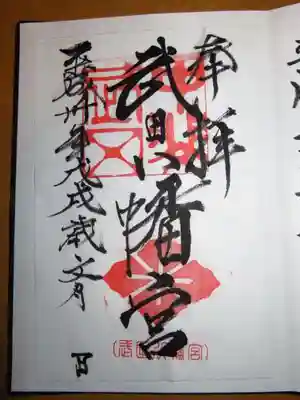 奉拝
武田八幡宮
平成卅年戊戌歳文月
武田八幡宮